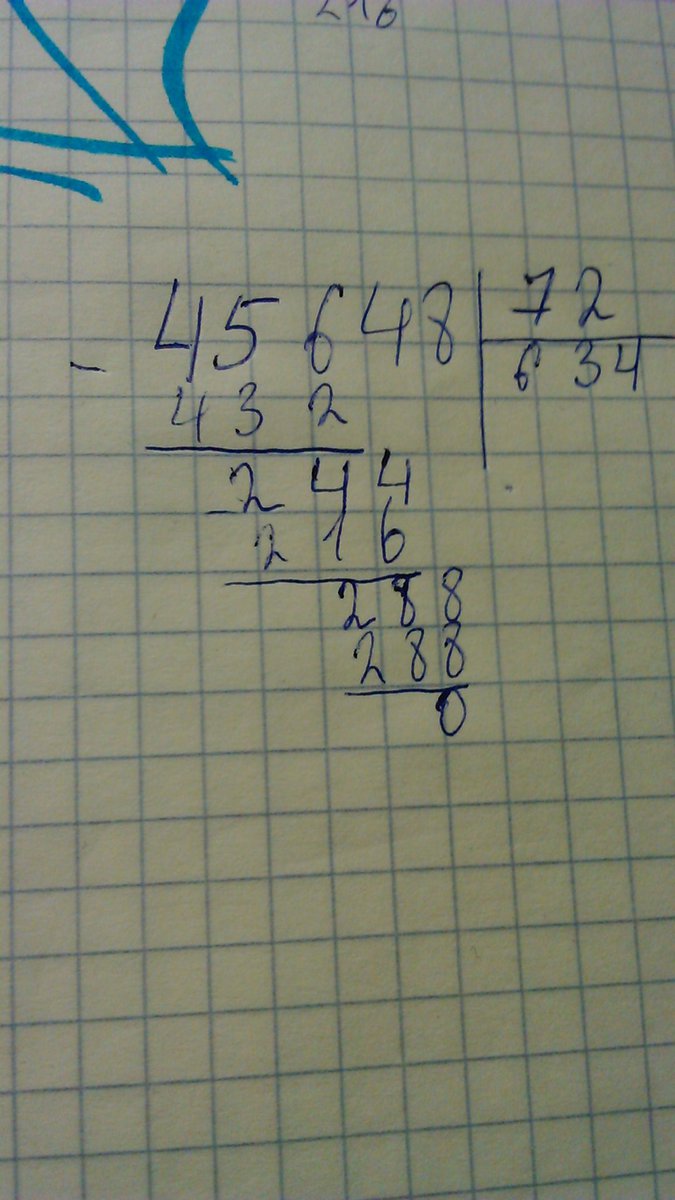 216
- 45648 | 72
432 | 634
- 244
216
288
288
0